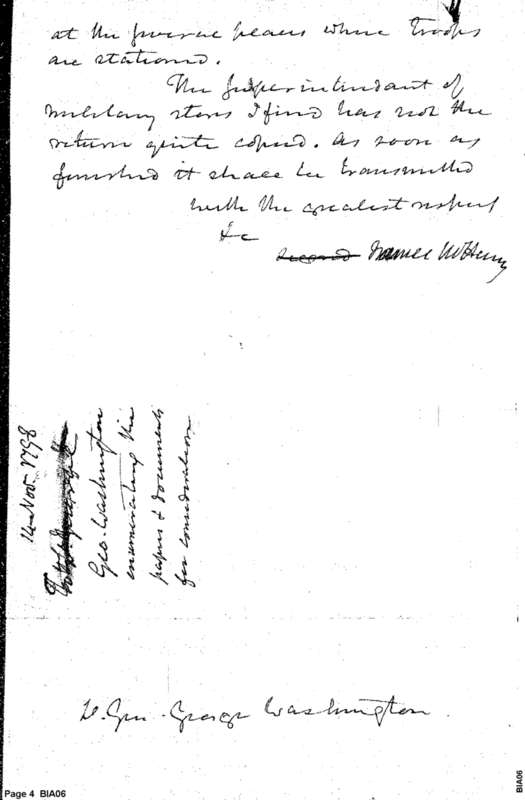 at the several places where troops
are stationed.
The Superintendant of
military stores I find has not the
return quite copied. As soon as
finished it shall be transmitted
with the greatest respect
&c
James McHenry
14 Nov. 1798
Geo. Washington
enumerating the
papers & documents
for consideration
Lt. Gen. George Washington.
Page 4 BIA06
BIA06